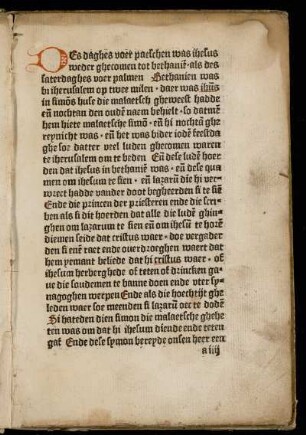 DEs daghes voer paeschen was ihesus
weder ghecomen tot bethaniē · als des
saterdaghes voer palmen Bethanien was
bi iherusalem op twee milen · daer was ihūs
in simōs huse die malaetsch gheweest hadde
eñ nochtan den oudē naem behielt · so datmē
hem hiete malaetsche simō · eñ hi nochtā ghe
reynicht was · eñ het was bider iodē feestda
ghe soe datter veel luden ghecomen waren
te iherusalem om te beden Eñ dese ludē hoer
den dat ihesus in bethaniē was · eñ dese qua
men om ihesum te sien · eñ lazarū die hi ver
wect hadde vander doot begheerden si te siē
Ende die princen der priesteren ende die scri
ben als si dit hoerden dat alle die ludē ghin
ghen om lazarum te sien eñ om ihesū te horē
diewen seide dat cristus waer · doe vergader
den si enē raet ende ouerdroeghen waert dat
hem yemant beliede dat hi cristus waer · of
ihesum herberghede of teten of drincken ga
ue die soudemen te banne doen ende vter sy
nagoghen werpen Ende als die hoechtijt ghe
leden waer soe meenden si lazarū oec te dodē
Si hateden dien simon die malaetsche ghehe
ten was om dat hi ihesum diende ende eten
gaf Ende dese symon bereyde onsen heer een
a iiij